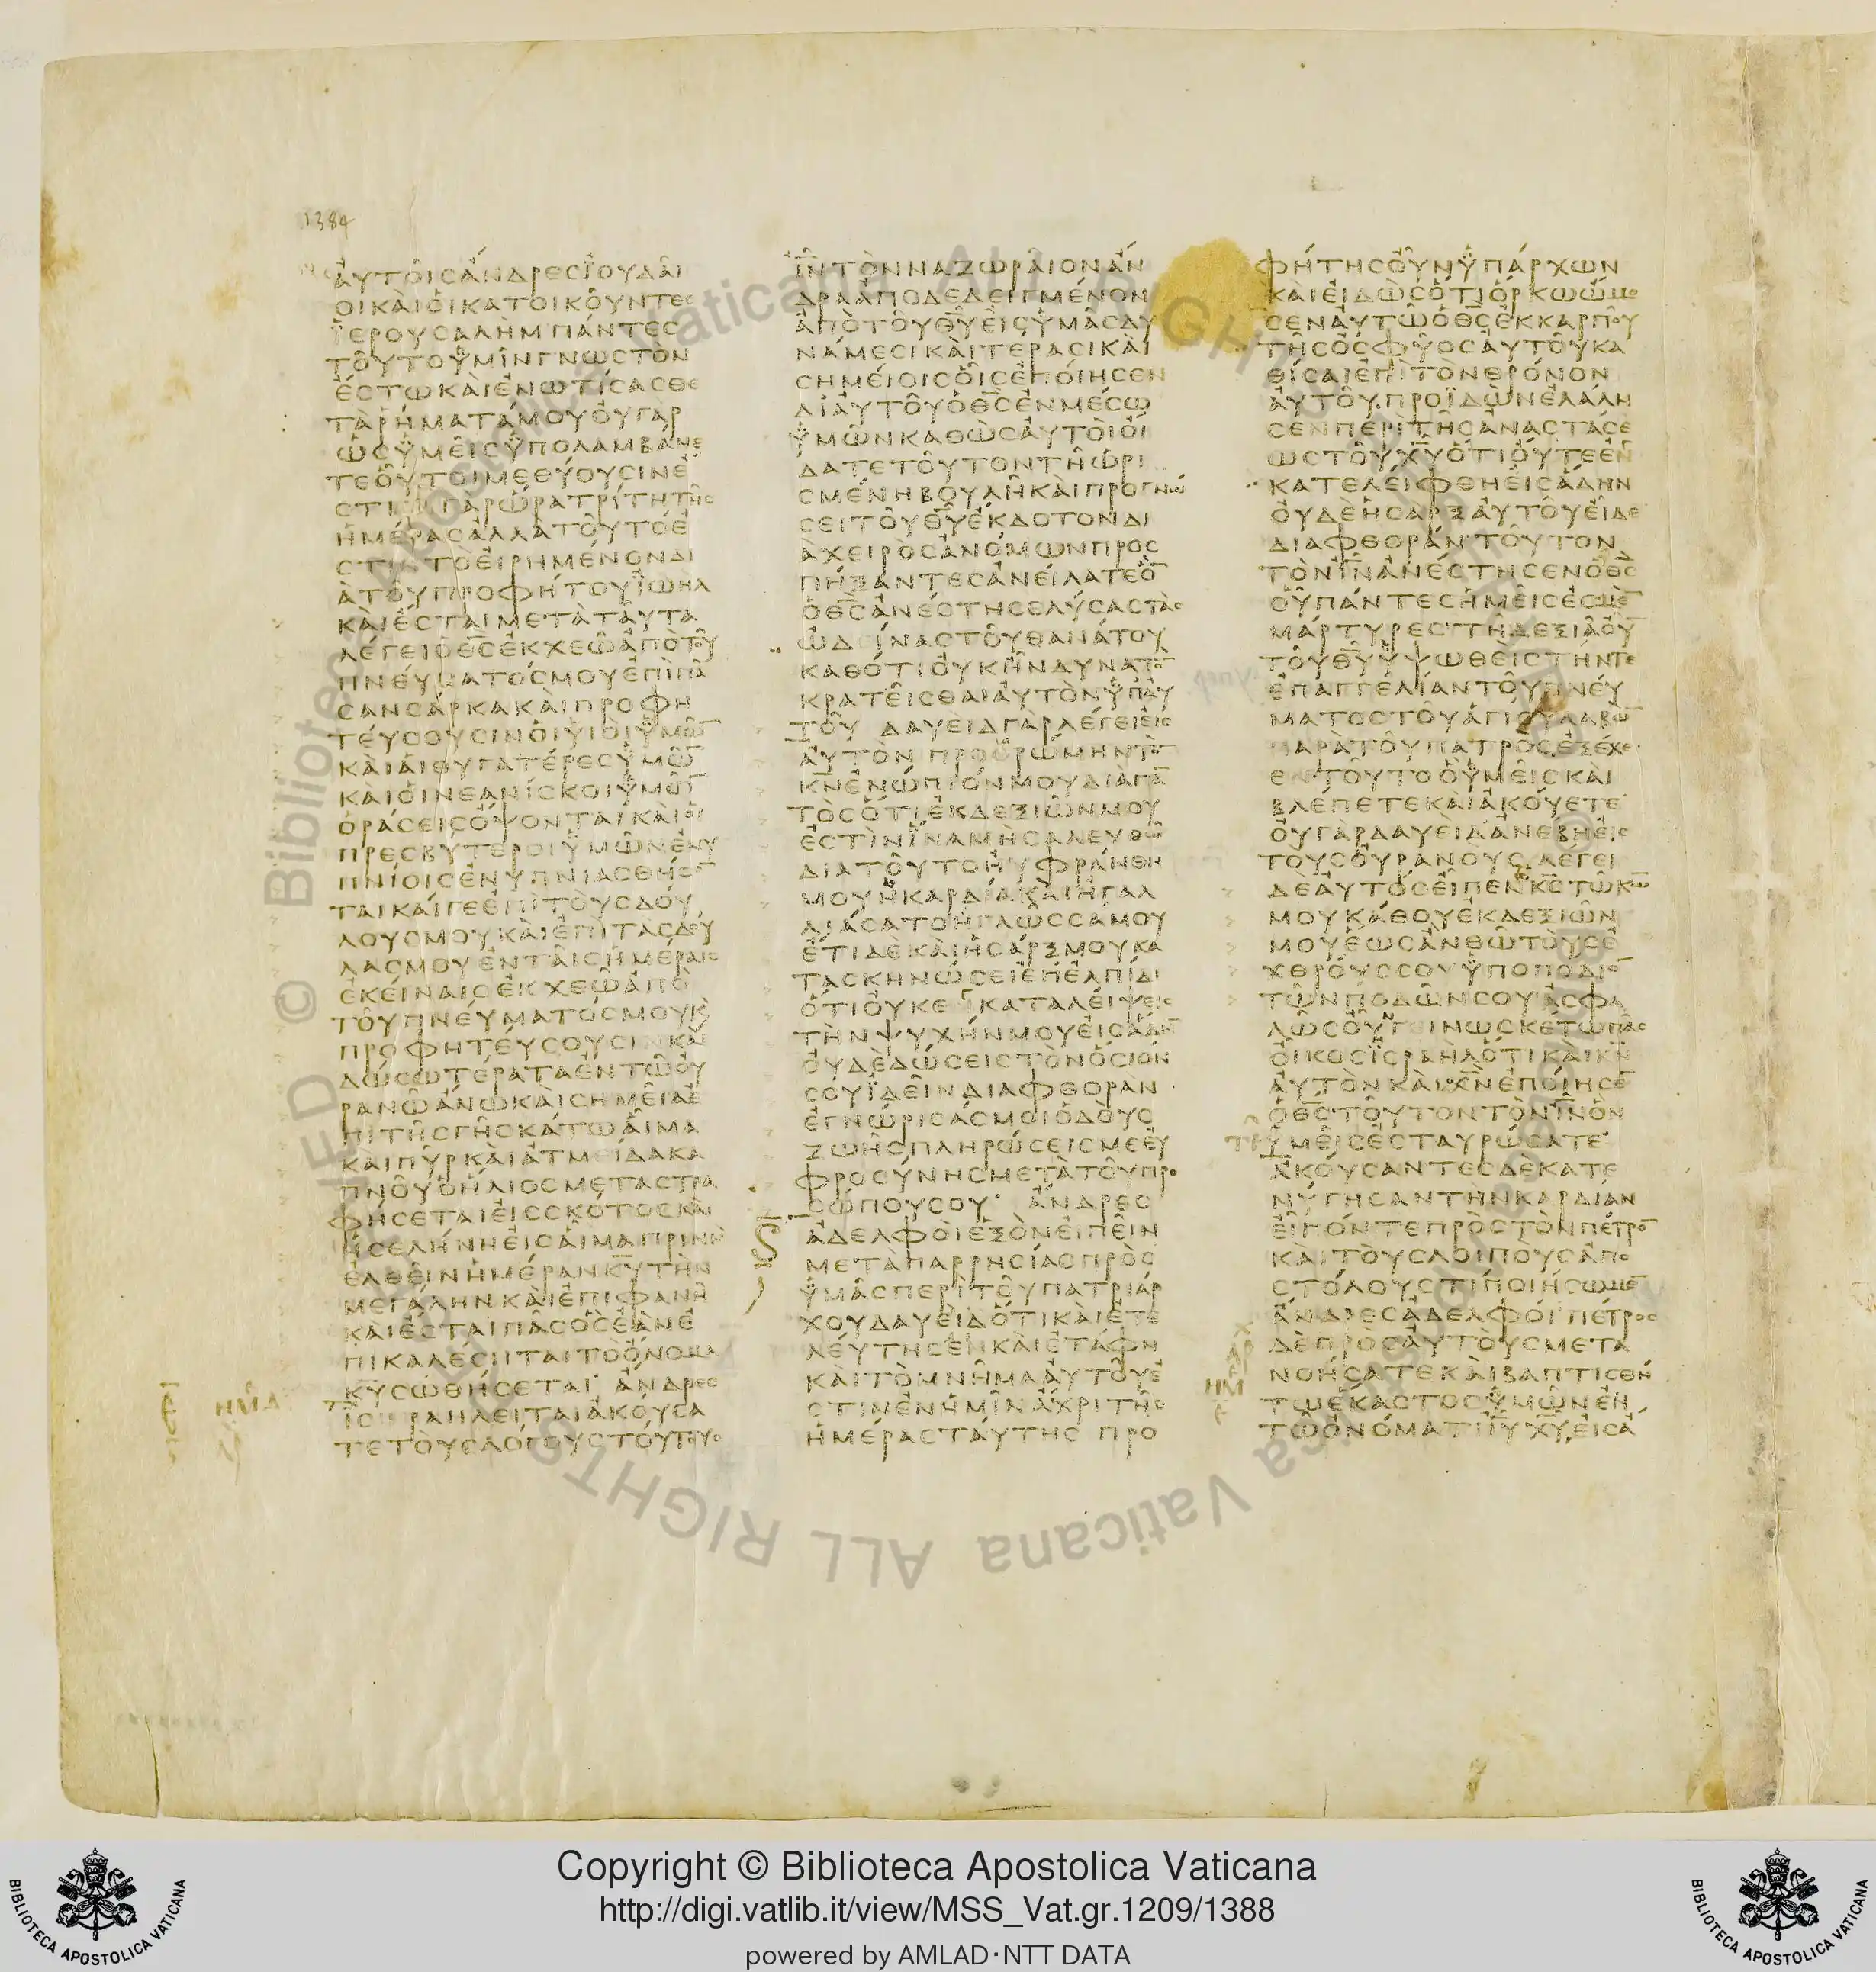 1384
ἀυτο͂ισἄνδρεσϊουδᾶι
οικὰιὁικατοικο͂υντεσ
ϊερουσαλημπάντεσ
το͂υτοϋμῖνγνωστὸν
ἔστωκὰιἐνωτίσασθε
τὰρήματάμουὀυγὰρ
ὡσϋμε͂ισϋπολαμβάνε
τεὅυτοιμεθύουσινἐ
στινγὰρὥρατρίτητῆσ
ἡμέρασἀλλὰτο͂υτόἐ
στιντὸἐιρημένονδι
ὰτο͂υπροφήτουϊωὴλ
κὰιἔσταιμετὰτᾶυτα
λέγειὁθ̅σ̅ἐκχεῶἀπὸτο͂υ
πνέυματόσμουἐπὶπᾶ
σανσάρκακὰιπροφη
τέυσουσινὁιϋιὸιϋμῶ̅
κὰιἁιθυγατέρεσϋμῶ̅
κὰιὁινεανίσκοιϋμῶ̅
ὁράσεισὄψονταικὰιὁι
πρεσβύτεροιϋμῶνἐνυ
πνίοισἐνυπνιασθήσο̅
ταικάιγεἐπὶτὸυσδόυ
λουσμουκὰιἐπὶτὰσδόυ
λασμουἐντᾶισἡμέραισ
ἐκέιναισἐκχεῶἀπὸ
το͂υπνέυματόσμουκὰι
προφητέυσουσινκὰι
δώσωτέραταἐντῶὀυ
ρανῶἄνωκὰισημε͂ιαἐ
πὶτῆσγῆσκάτωἇιμα
κὰιπῦρκὰιἀτμείδακα
πνο͂υὁἥλιοσμεταστρα
φήσεταιἐισσκότοσκὰι
ἡσελήνηἐισἇιμαπρὶνὴ̀
ἐλθε͂ινἡμέρανκ̅υ̅τὴν
μεγάληνκὰιἐπιφανῆ
κὰιἔσταιπᾶσὃσἐὰνἐ
πικαλέσηταιτὸὄνομα
κ̅υ̅σωθήσεται ἄνδρεσ
ϊστραηλεῖταιἀκούσα
τετὸυσλόγουστόυτουσ
ι̅ν̅τὸνναζωρᾶιονἄν
δραἀποδεδειγμένον
ἀπὸτο͂υθ̅υ̅ἐισϋμᾶσδυ
νάμεσικὰιτέρασικὰι
σημέιοισὁ͂ισἐπόιησεν
δἰἀυτο͂υὁθ̅σ̅ἐνμέσω
ϋμῶνκαθὼσἀυτὸιὀι
δατετο͂υτοντῆὡρι
σμένηβουλῆκὰιπρογνώ
σειτο͂υθ̅υ̅ἔκδοτονδι
ὰχειρὸσἀνόμωνπροσ
πήξαντεσἀνείλατεὃ̅
ὁθ̅σ̅ἀνέστησελύσαστὰσ
ὠδεῖναστο͂υθανάτου
καθότιὀυκἦνδυνατὸ̅
κρατε͂ισθαιἀυτὸνϋπἀυ
το͂υ δαυειδγὰρλέγειἐισ
ἀυτὸν προορώμηντὸ̅
κ̅ν̅ἐνώπιόνμουδιαπᾶ̅
τὸσὅτιἐκδεξιῶνμου
ἐστὶνἵναμὴσαλευθῶ̅
διατο͂υτοηυφράνθη
μουἡκαρδίακὰιἠγαλ
λιάσατοἡγλῶσσάμου
ἔτιδὲκὰιἡσάρξμουκα
τασκηνώσειἐπἐλπίδι
ὅτιὀυκενκαταλείψεισ
τὴνψυχήνμουἐισἅδη̅
ὀυδὲδώσειστὸνὅσιόν
σουϊδε͂ινδιαφθοράν
ἐγνώρισάσμοιὁδὸυσ
ζωῆσπληρώσεισμεἐυ
φροσύνησμετὰτο͂υπρο
σώπουσου ἄνδρεσ
ἀδελφὸιἐξὸνἐιπε͂ιν
μετὰπαρρησίασπρὸσ
ϋμᾶσπερὶτο͂υπατριάρ
χουδαυεὶδὅτικὰιἐτε
λέυτησενκὰιἐτάφη
κὰιτὸμνῆμαἀυτο͂υἐ
στινἐνἡμῖνἄχριτῆσ
ἡμέραστάυτησ προ
φήτησὀ͂υνϋπάρχων
κὰιἐιδὼσὅτιὅρκωὤμο
σενἀυτῶὁθ̅σ̅ἐκκαρπο͂υ
τῆσὀσφύοσἀυτο͂υκα
θίσαιἐπὶτὸνθρόνον
ἀυτο͂υ.προϊδὼνἐλάλη
σενπερὶτῆσἀναστάσε
ωστο͂υχ̅υ̅ὅτιὄυτεἐν
κατελέιφθηἐισἅδην
ὀυδὲἡσὰρξἀυτο͂υἐ͂ιδε
διαφθοράν το͂υτον
τὸνι̅ν̅ἀνέστησενὁθ̅σ̅
ὁ͂υπάντεσἡμε͂ισἐσμὲ̅
μάρτυρεσ τῆδεξιᾶὀ͂υ
το͂υθ̅υ̅ϋψωθεὶστήντε
ἐπαγγελίαντο͂υπνέυ
ματοστο͂υἁγίουλαβὼ̅
παρὰτο͂υπατρὸσ.ἐξέχε
εντο͂υτοὃϋμε͂ισκὰι
βλέπετεκὰιἀκόυετε
ὀυγὰρδαυεὶδἀνέβηἐισ
τὸυσὀυρανόυσ.λέγει
δὲἀυτόσἐ͂ιπενκ̅σ̅τῶκ̅ω̅
μουκάθουἐκδεξιῶν
μουἕωσἂνθῶτὸυσἐ
χθρόυσσουϋποπόδιο̅
τῶνποδῶνσουἀσφα
λῶσὀ͂υνγεινωσκέτωπᾶσ
ὀ͂ικοσϊσραὴλὅτικὰικ̅ν̅
ἀυτὸνκὰιχ̅ν̅ἐπόιησε̅
ὁθ̅σ̅το͂υτοντὸνι̅ν̅ὃν
ϋμε͂ισἐσταυρώσατε
ἀκόυσαντεσδὲκατε
νύγησαντὴνκαρδίαν
ἐ͂ιπόντεπρὸστὸνπέτρο̅
κὰιτὸυσλοιποὺσἀπο
στόλουστίποιήσωμε̅
ἄνδρεσἀδελφόι πέτροσ
δὲπρὸσἀυτὸυσμετα
νοήσατεκὰιβαπτισθή
τωἕκαστοσϋμῶνἐν
τῶὀνόματιι̅υ̅χ̅υ̅ἐισἄ
Copyright © Biblioteca Apostolica Vaticana
http://digi.vatlib.it/view/MSS_Vat.gr.1209/1388
powered by AMLAD·NTT DATA
BIBLIOTECA APOSTOLICA VATICANA
BIBLIOTECA APOSTOLICA VATICANA